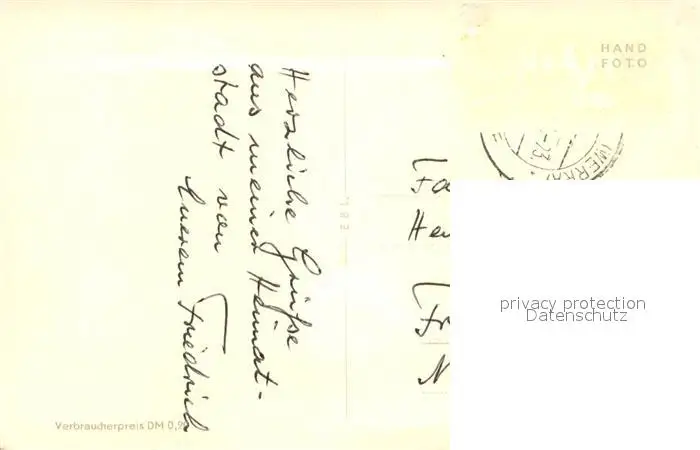 HAND
FOTO
Herzliche Grüße
aus meiner Heimat-
stadt von
Eurem Friedrich
privacy protection
Datenschutz
Verbraucherpreis DM 0,